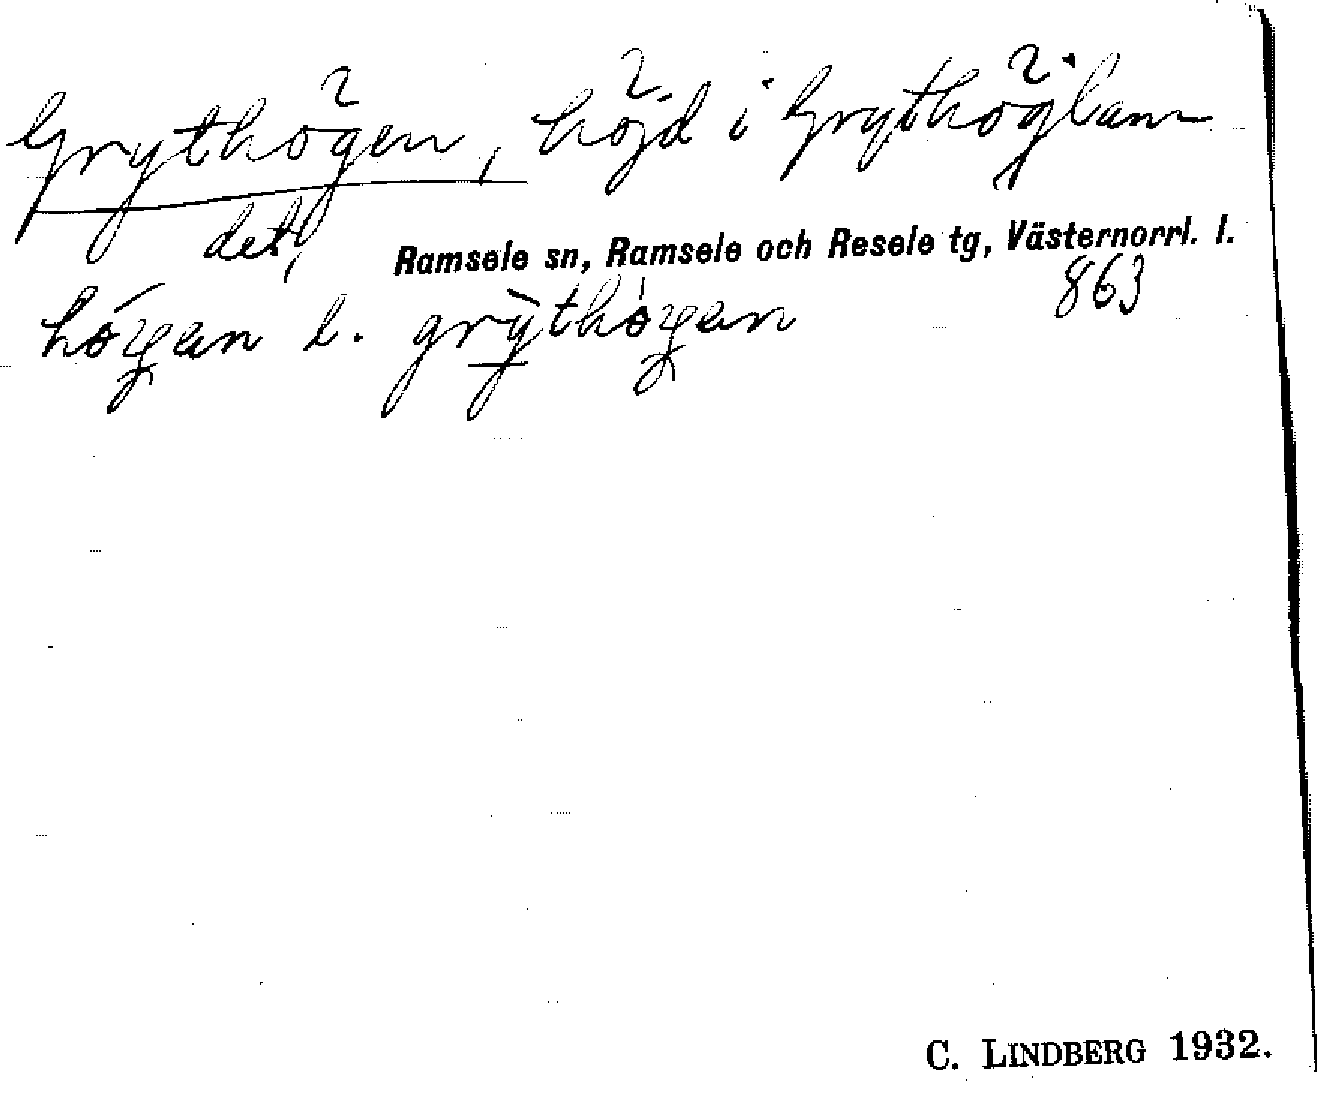 Grythögen, höjd i Grythöglan
det,
Ramsele sn, Ramsele och Resele tg, Västernorrl. l.
863
högan l. grythögan
C. LINDBERG 1932.